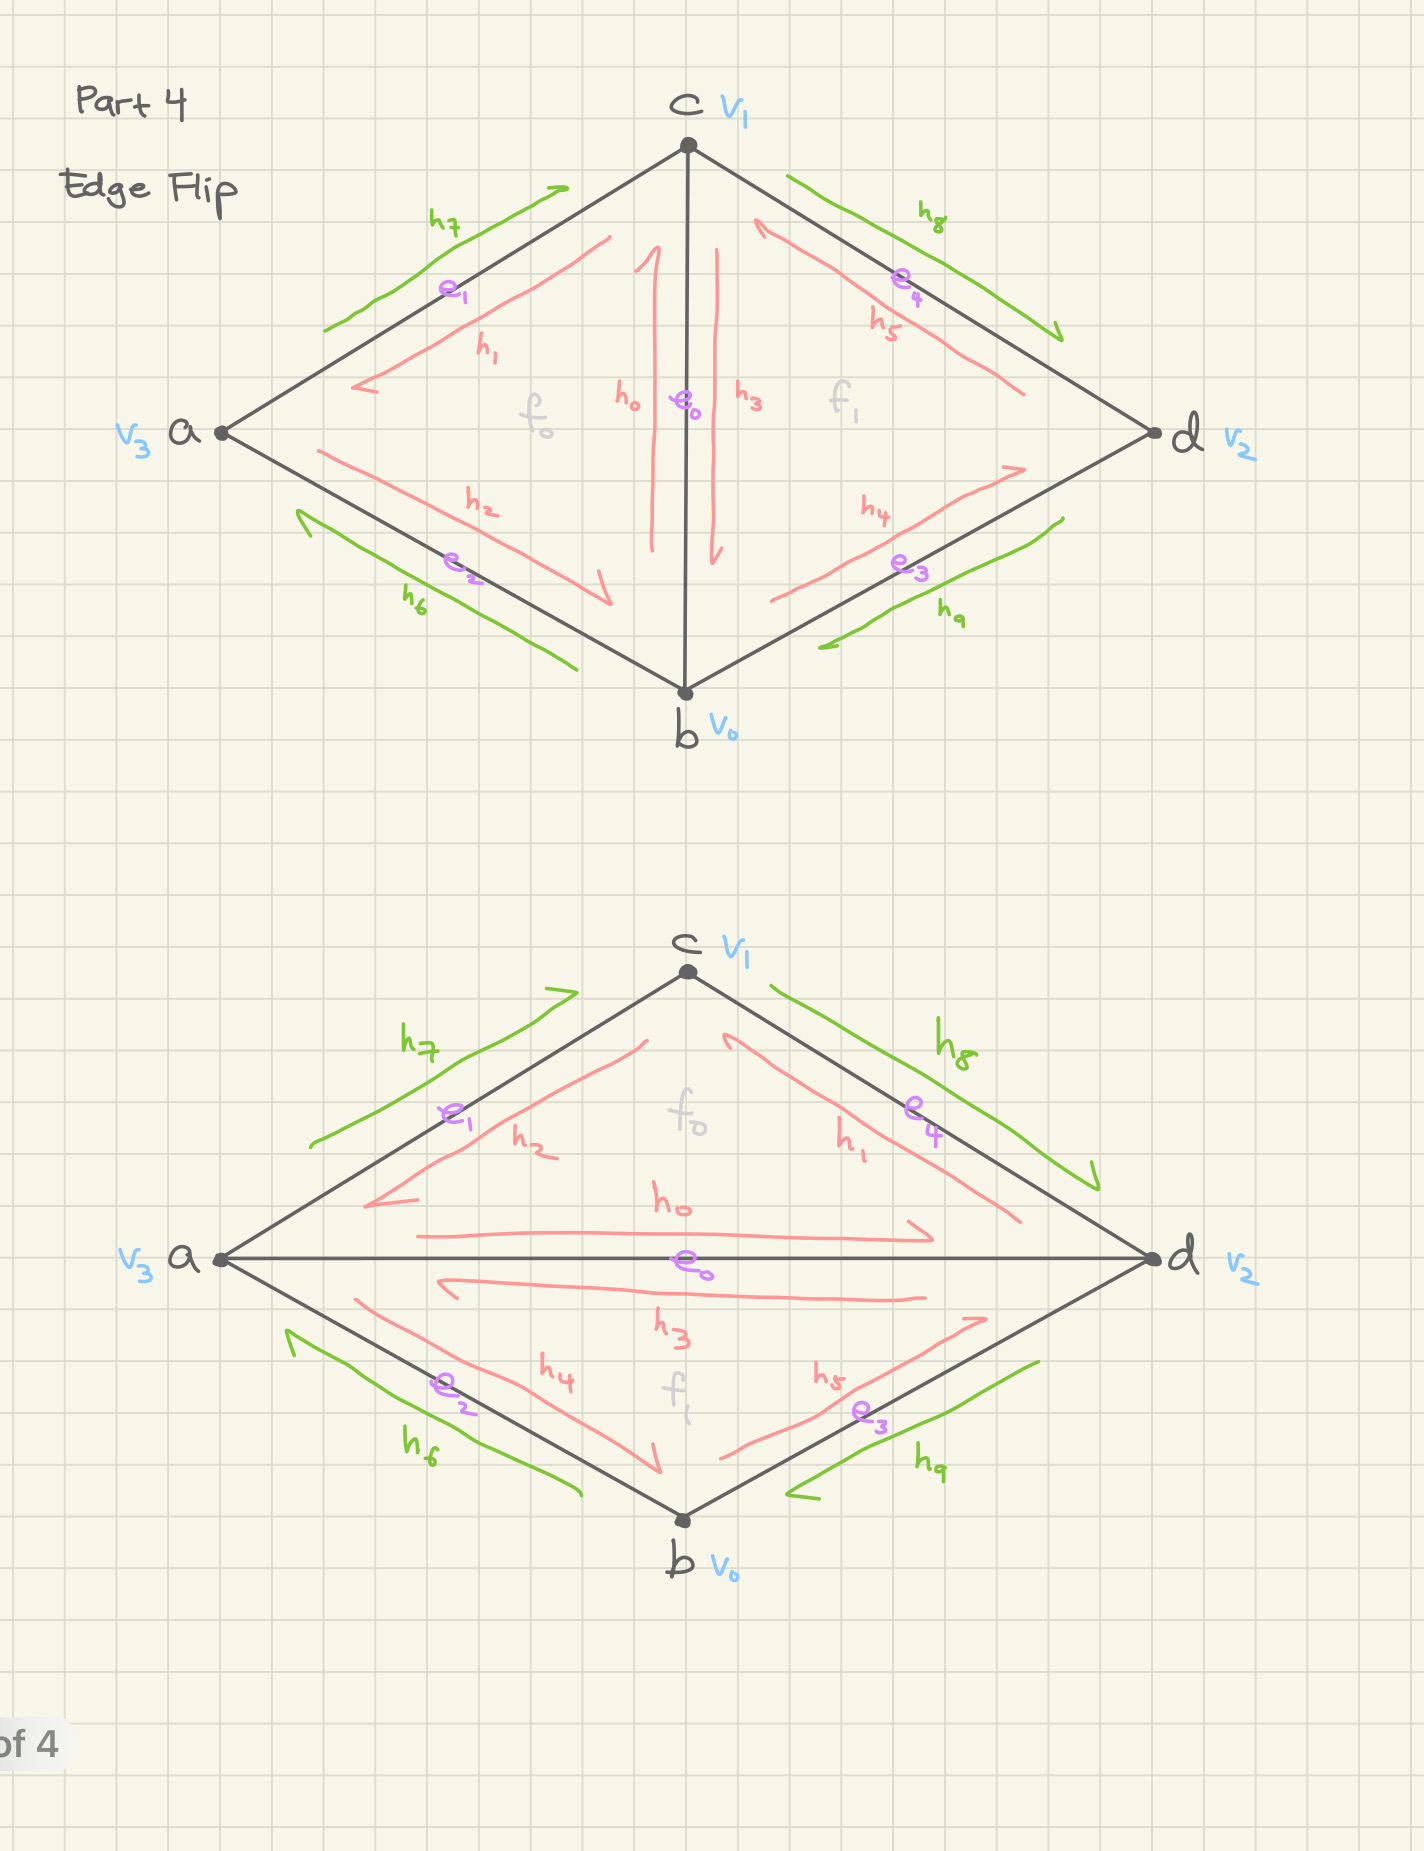 Part 4
Edge Flip
c v₁
h₇
h₈
e₁
e₄
h₁
h₅
h₀
e₀
h₃
f₀
f₁
v₃ a
d v₂
h₂
h₄
e₂
e₃
h₆
h₉
b v₀
c v₁
h₇
h₈
f₀
e₁
e₄
h₂
h₁
h₀
v₃ a
e₀
d v₂
h₃
h₄
h₅
e₂
f₁
e₃
h₆
h₉
b v₀
of 4